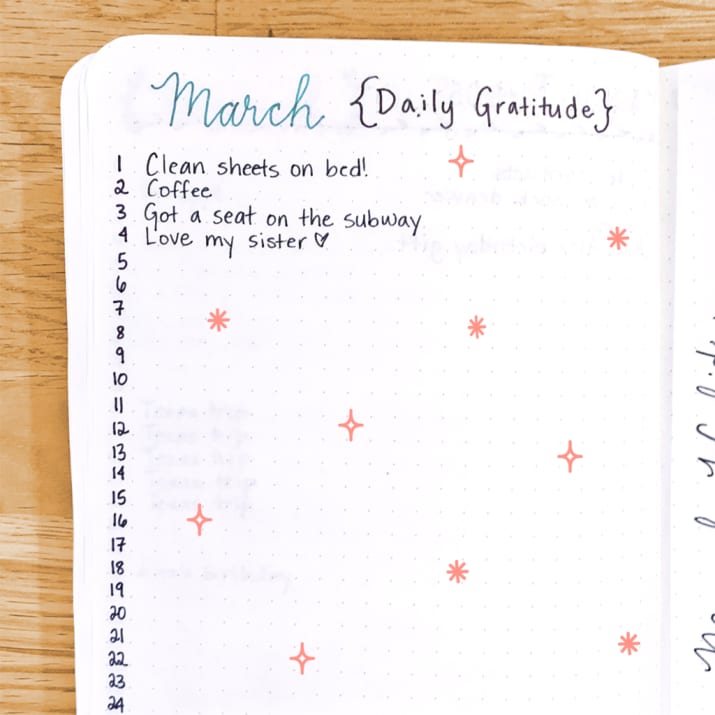 March {Daily Gratitude}
1 Clean sheets on bed!
2 Coffee
3 Got a seat on the subway
4 Love my sister ♡
5
6
7
8
9
10
11
12
13
14
15
16
17
18
19
20
21
22
23
24